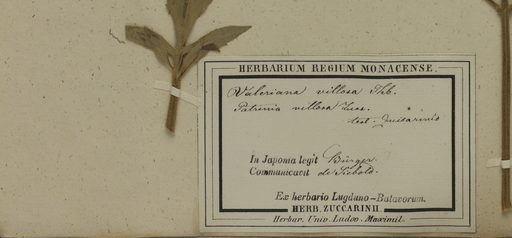 HERBARIUM REGIUM MONACENSE.
Valeriana villosa Thb.
Patrinia villosa Juss.
test. Zuccarinio
In Japonia legit Bürger.
Communicavit de Siebold.
Ex herbario Lugduno-Batavorum.
HERB. ZUCCARINII.
Herbar. Univ. Ludov. Maximil.